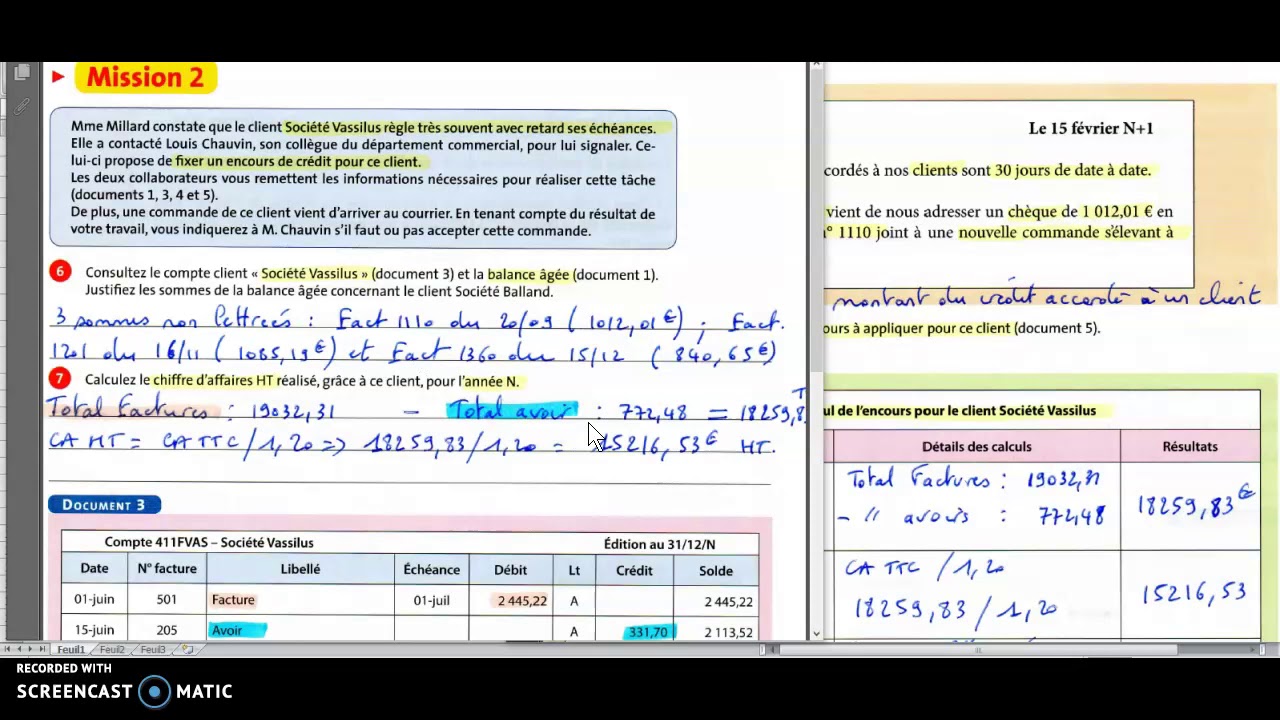 Mission 2
Mme Millard constate que le client Société Vassilus règle très souvent avec retard ses échéances.
Elle a contacté Louis Chauvin, son collègue du département commercial, pour lui signaler. Ce-
lui-ci propose de fixer un encours de crédit pour ce client.
Les deux collaborateurs vous remettent les informations nécessaires pour réaliser cette tâche
(documents 1, 3, 4 et 5).
De plus, une commande de ce client vient d'arriver au courrier. En tenant compte du résultat de
votre travail, vous indiquerez à M. Chauvin s'il faut ou pas accepter cette commande.
6 Consultez le compte client « Société Vassilus » (document 3) et la balance âgée (document 1).
Justifiez les sommes de la balance âgée concernant le client Société Balland.
3 sommes non lettrées : Fact 1110 du 20/09 (1012,01€) ; Fact.
1201 du 16/11 (1085,19€) et Fact 1360 du 15/12 (840,65€)
7 Calculez le chiffre d'affaires HT réalisé, grâce à ce client, pour l'année N.
Total Factures : 19032,31 – Total avoir : 772,48 = 18259,8
CA HT = CA TTC / 1,20 => 18259,83/1,20 = 15216,53€ HT.
DOCUMENT 3
Compte 411FVAS – Société Vassilus Édition au 31/12/N
Date N° facture Libellé Échéance Débit Lt Crédit Solde
01-juin 501 Facture 01-juil 2 445,22 A 2 445,22
15-juin 205 Avoir A 331,70 2 113,52
Feuil1 Feuil2 Feuil3
Le 15 février N+1
cordés à nos clients sont 30 jours de date à date.
vient de nous adresser un chèque de 1 012,01 € en
n° 1110 joint à une nouvelle commande s'élevant à
montant du crédit accordé à un client
ours à appliquer pour ce client (document 5).
ul de l'encours pour le client Société Vassilus
Détails des calculs Résultats
Total Factures : 19032,31
– " avoirs : 772,48
18259,83€
CA TTC / 1,20
18259,83 / 1,20
15216,53
RECORDED WITH
SCREENCAST MATIC